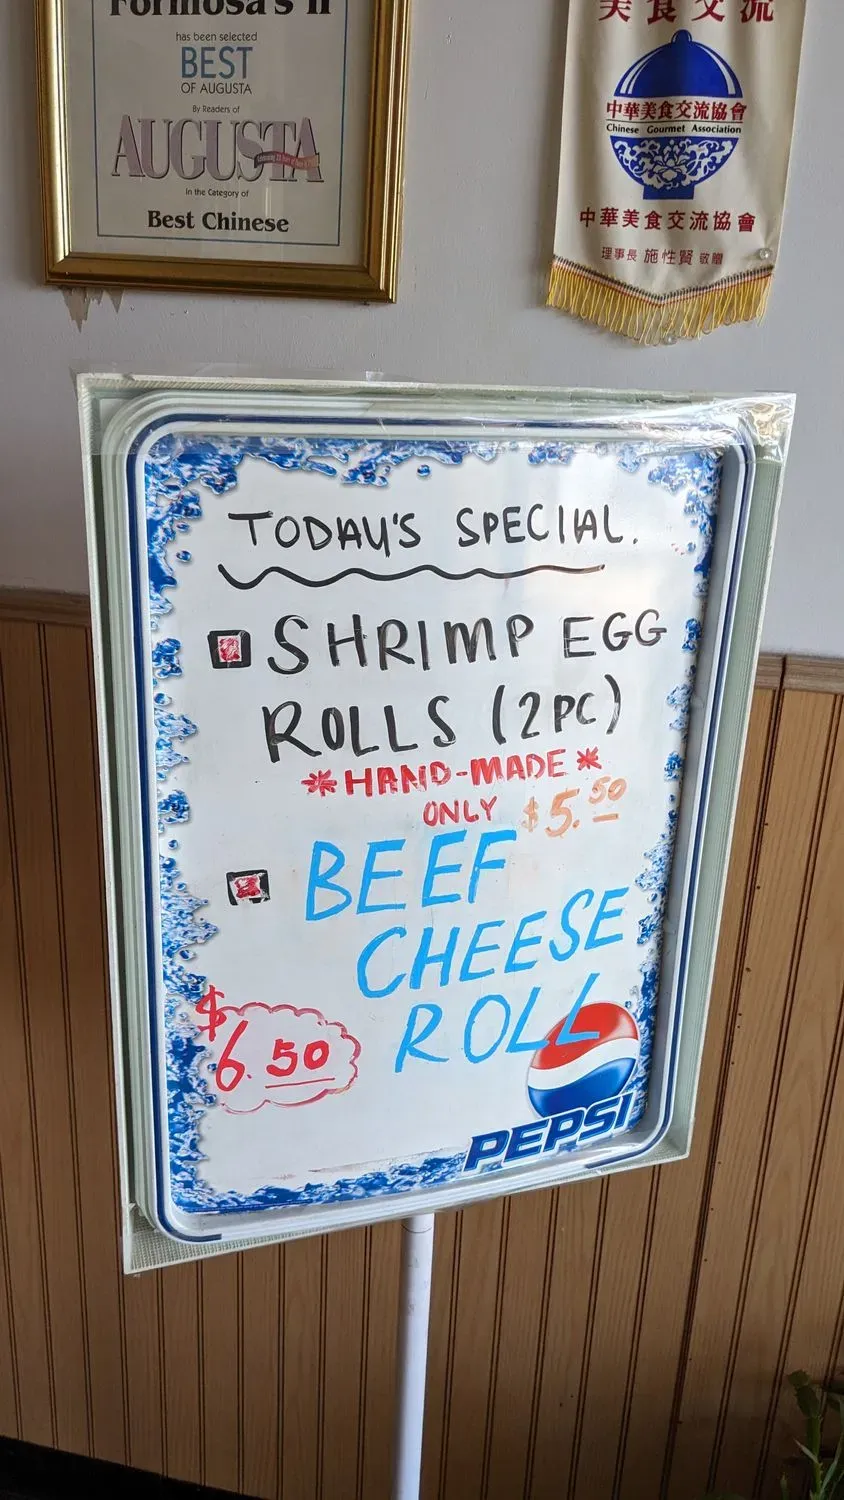 Formosa's II
has been selected
BEST
OF AUGUSTA
By Readers of
AUGUSTA
in the Category of
Best Chinese
美食交流
中華美食交流協會
Chinese Gourmet Association
中華美食交流協會
理事長 施性賢 敬贈
TODAY'S SPECIAL.
SHRIMP EGG
ROLLS (2PC)
*HAND-MADE*
ONLY $5.50
BEEF
CHEESE
ROLL
$6.50
PEPSI